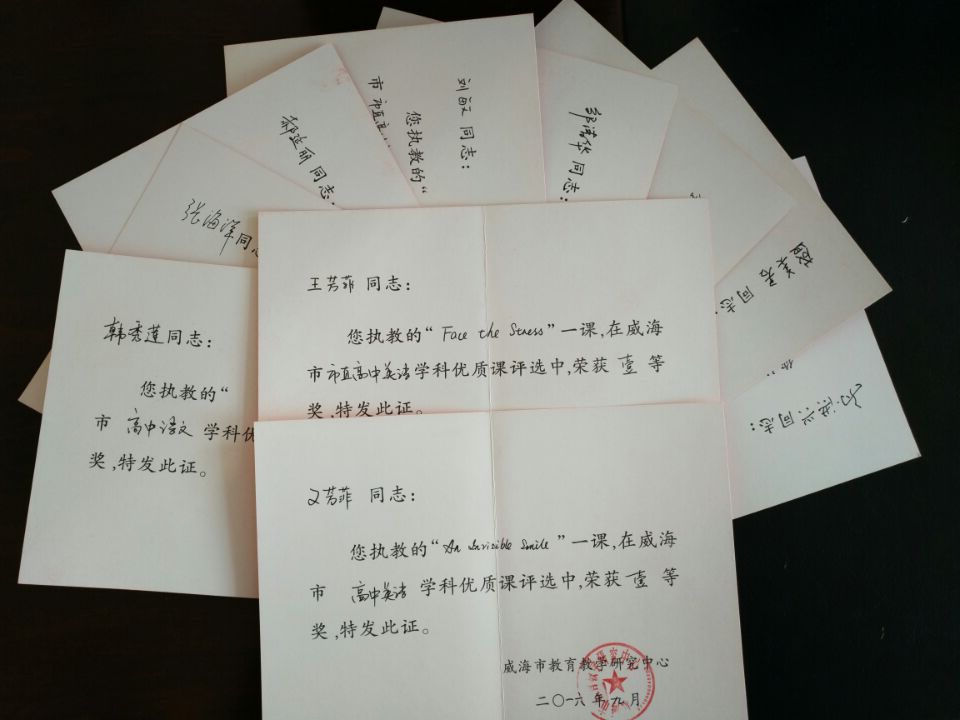 刘
同志：
您执教的“
市 市直高
邹
华 同志：
丽 同志：
张海洋 同
盛
君 同志：
同志：
韩秀莲 同志：
您执教的“
市 高中语文 学科优
奖，特发此证。
王芳菲 同志：
您执教的“Face the Stress”一课，在威海
市 市直高中英语 学科优质课评选中，荣获 壹 等
奖，特发此证。
芳菲 同志：
您执教的“An Invisible Smile”一课，在威海
市 高中英语 学科优质课评选中，荣获 壹 等
奖，特发此证。
威海市教育教学研究中心
二〇一六年九月